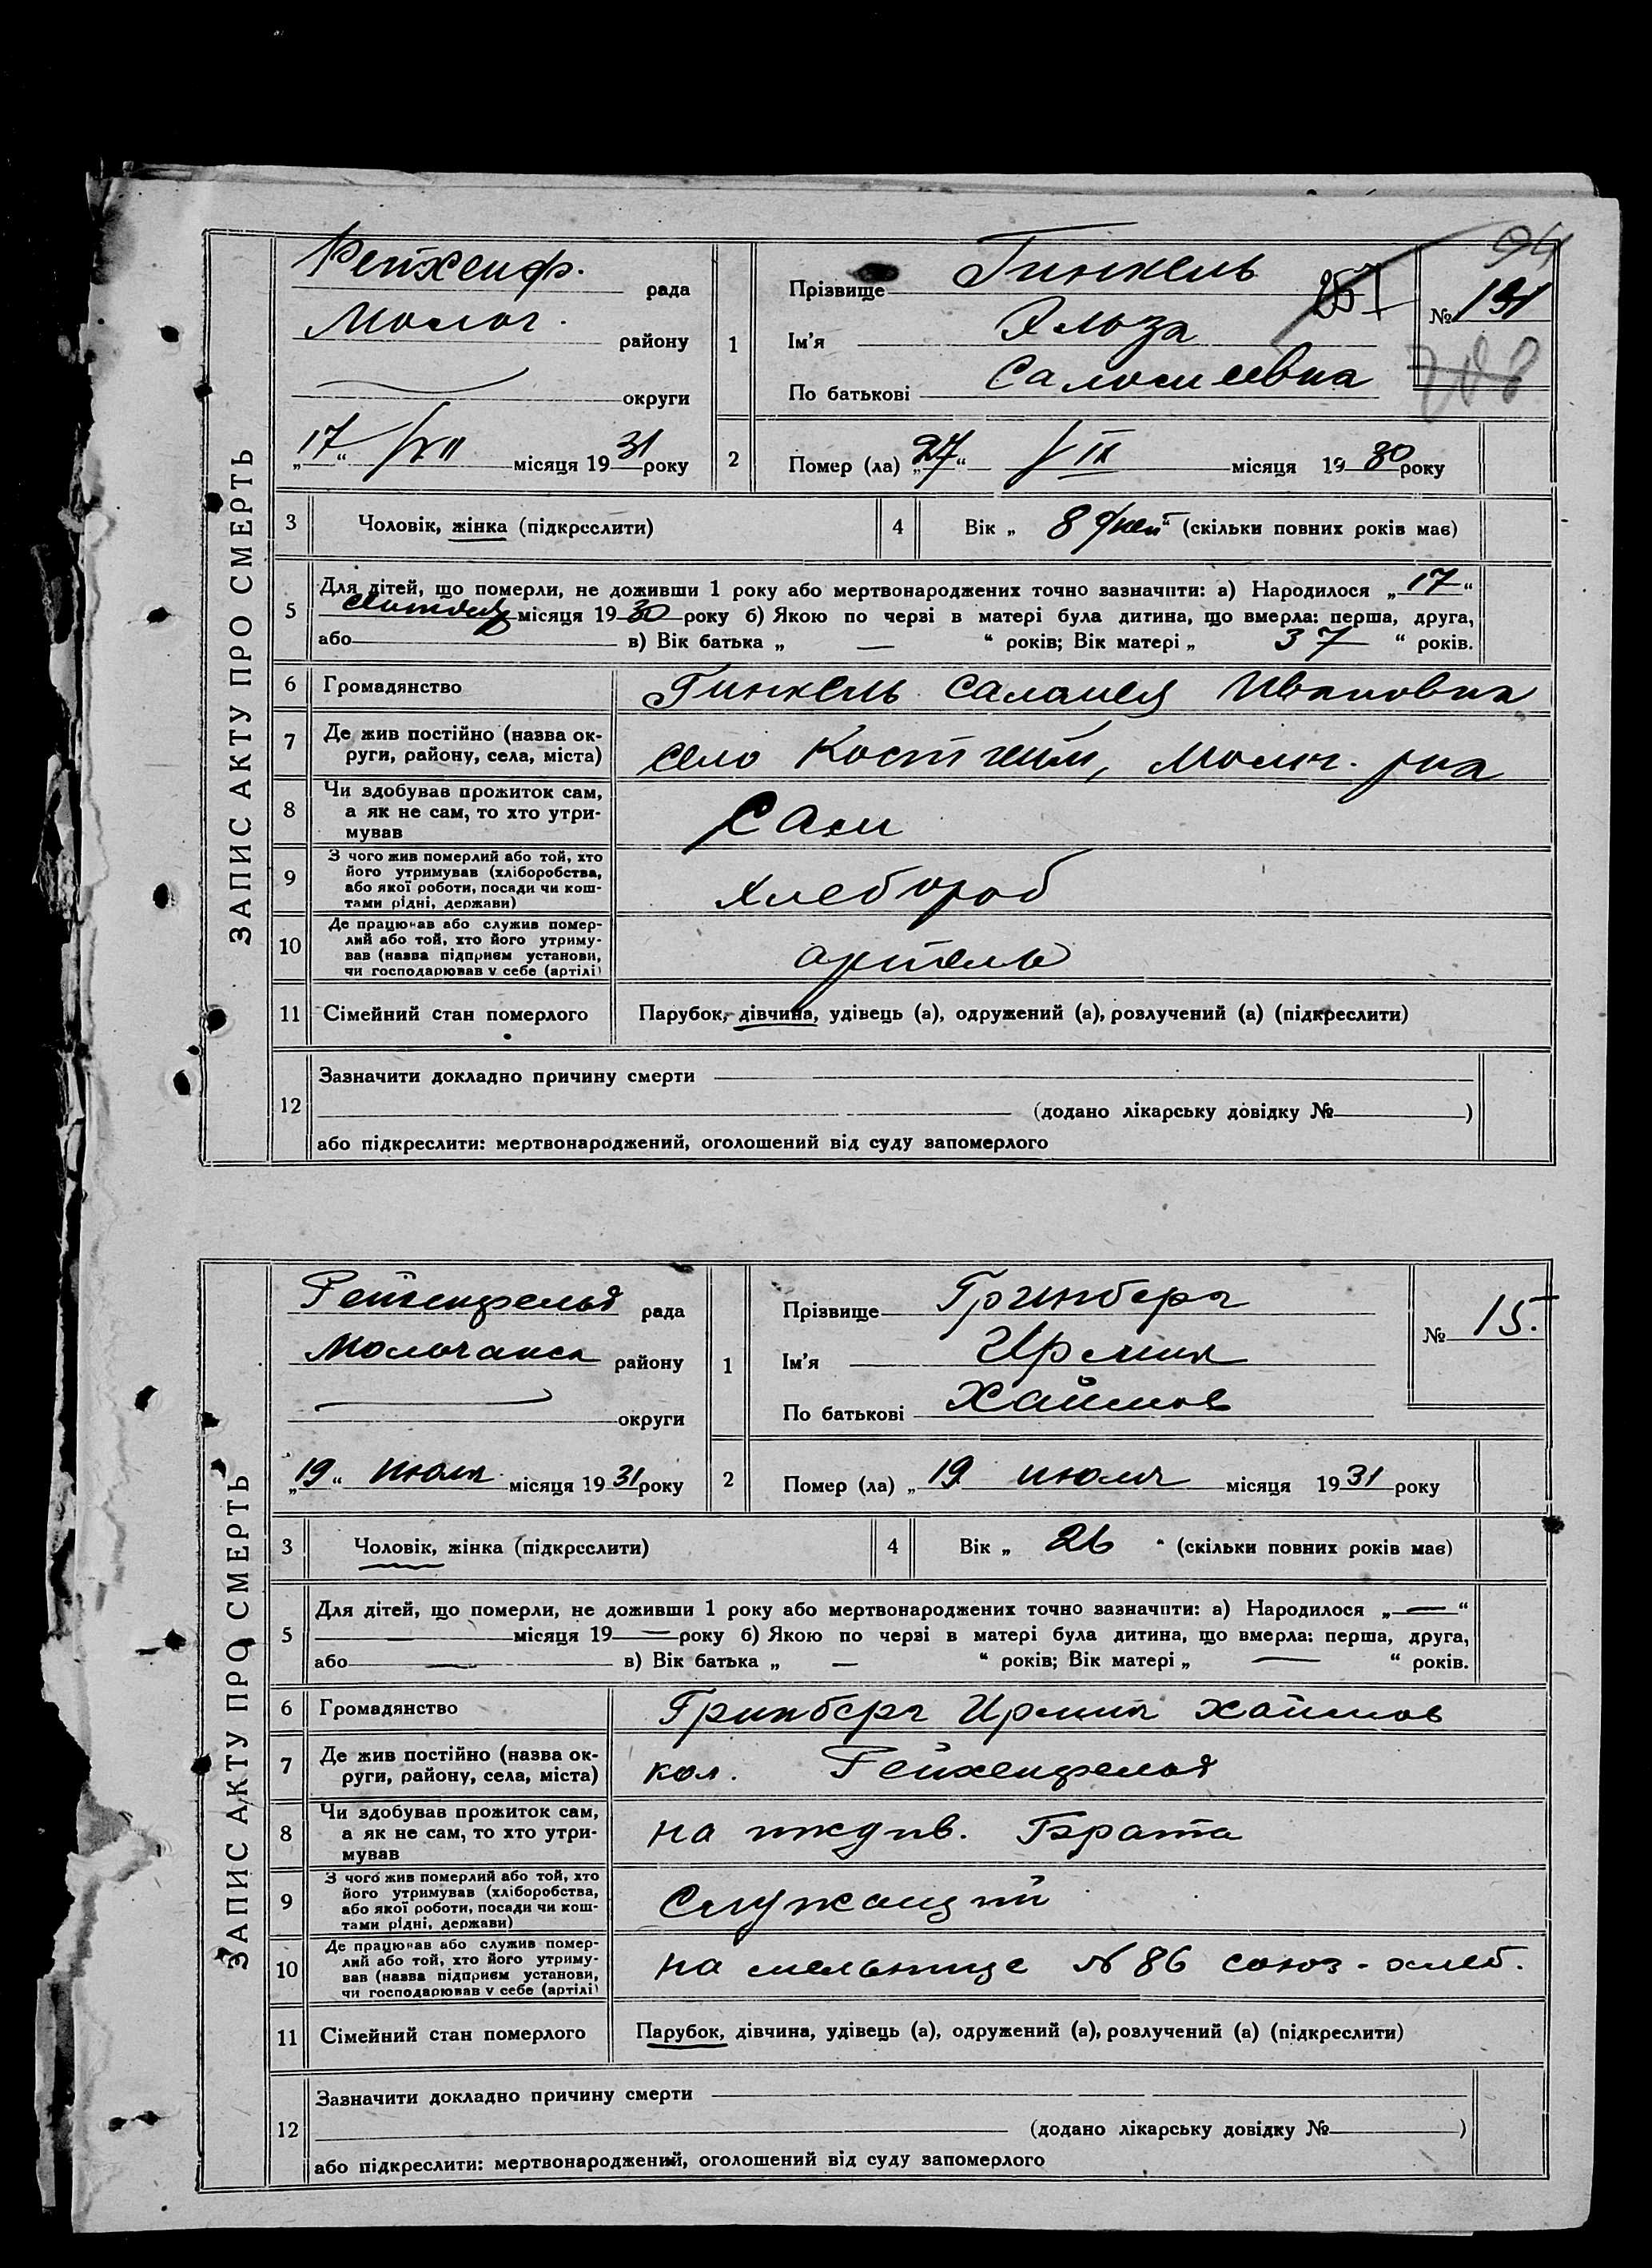 ЗАПИС АКТУ ПРО СМЕРТЬ
94
Рейхенф. рада
Молоч. району
округи
„17“ /VII місяця 1931 року
1
Прізвище Гинкель
Ім'я Эльза
По батькові
№ 191
2
Помер (ла) „27“ /IX місяця 1930 року
3 Чоловік, жінка (підкреслити)
4 Вік „ 8 дней “ (скільки повних років має)
5 Для дітей, що померли, не доживши 1 року або мертвонароджених точно зазначити: а) Народилося „17“
місяця 1930 року б) Якою по черзі в матері була дитина, що вмерла: перша, друга,
або в) Вік батька „ — “ років; Вік матері „ 37 “ років.
6 Громадянство Гинкель Саламея Ивановна
7 Де жив постійно (назва округи, району, села, міста) село Костгейм, Молоч. р-на
8 Чи здобував прожиток сам, а як не сам, то хто утримував Сам
9 З чого жив померлий або той, хто його утримував (хліборобства, або якої роботи, посади чи коштами рідні, держави) хлебороб
10 Де працював або служив померлий або той, хто його утримував (назва підприєм установи, чи господарював у себе (артілі) артель
11 Сімейний стан померлого Парубок, дівчина, удівець (а), одружений (а), розлучений (а) (підкреслити)
12 Зазначити докладно причину смерти
(додано лікарську довідку № )
або підкреслити: мертвонароджений, оголошений від суду запомерлого
ЗАПИС АКТУ ПРО СМЕРТЬ
Рейхенфельд рада
Молочанск району
округи
„19“ июля місяця 1931 року
1
Прізвище Гринберг
Ім'я
По батькові Хаимов
№ 15.
2
Помер (ла) „19 июля місяця 1931 року
3 Чоловік, жінка (підкреслити)
4 Вік „ 26 “ (скільки повних років має)
5 Для дітей, що померли, не доживши 1 року або мертвонароджених точно зазначити: а) Народилося „—“
— місяця 19— року б) Якою по черзі в матері була дитина, що вмерла: перша, друга,
або — в) Вік батька „ — “ років; Вік матері „ — “ років.
6 Громадянство Гринберг Хаимов
7 Де жив постійно (назва округи, району, села, міста) кол. Рейхенфельд
8 Чи здобував прожиток сам, а як не сам, то хто утримував на иждив. Брата
9 З чого жив померлий або той, хто його утримував (хліборобства, або якої роботи, посади чи коштами рідні, держави) Служащий
10 Де працював або служив померлий або той, хто його утримував (назва підприєм установи, чи господарював у себе (артілі) на мельнице №86 союз-хлеб.
11 Сімейний стан померлого Парубок, дівчина, удівець (а), одружений (а), розлучений (а) (підкреслити)
12 Зазначити докладно причину смерти
(додано лікарську довідку № )
або підкреслити: мертвонароджений, оголошений від суду запомерлого